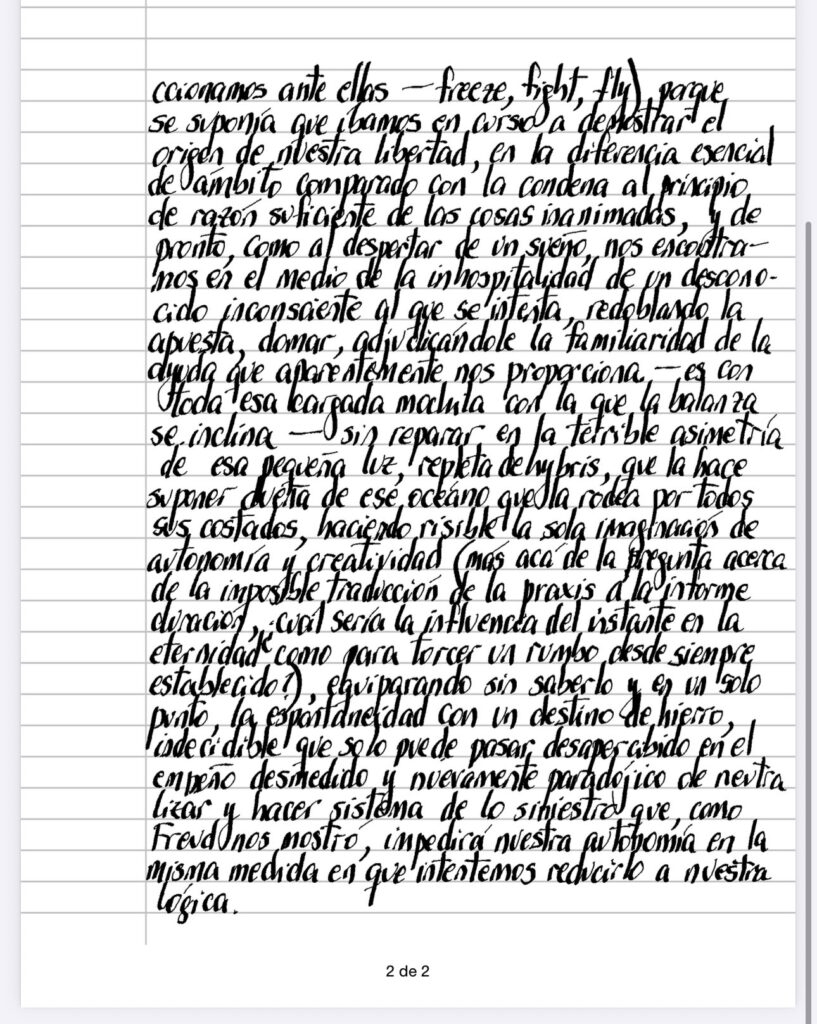 ccionamos ante ellas — freeze, fight, fly) porque
se suponía que íbamos en curso a demostrar el
origen de nuestra libertad, en la diferencia esencial
de ámbito comparado con la condena al principio
de razón suficiente de las cosas inanimadas, y de
pronto, como al despertar de un sueño, nos encontra-
mos en el medio de la inhospitalidad de un descono-
cido inconsciente al que se intenta, redoblando la
apuesta, domar, adjudicándole la familiaridad de la
ayuda que aparentemente nos proporciona — es con
toda esa cargada mochila con la que la balanza
se inclina — sin reparar en la terrible asimetría
de esa pequeña luz, repleta de hybris, que la hace
suponer dueña de ese océano que la rodea por todos
sus costados, haciendo risible la sola imaginación de
autonomía y creatividad (más acá de la pregunta acerca
de la imposible traducción de la praxis a la informe
duración, ¿cuál sería la influencia del instante en la
eternidad como para torcer un rumbo desde siempre
establecido?), equiparando sin saberlo y en un solo
punto, la espontaneidad con un destino de hierro,
indecidible que solo puede pasar desapercibido en el
empeño desmedido y nuevamente paradójico de neutra
lizar y hacer sistema de lo siniestro que, como
Freud nos mostró, impedirá nuestra autonomía en la
misma medida en que intentemos reducirlo a nuestra
lógica.
2 de 2